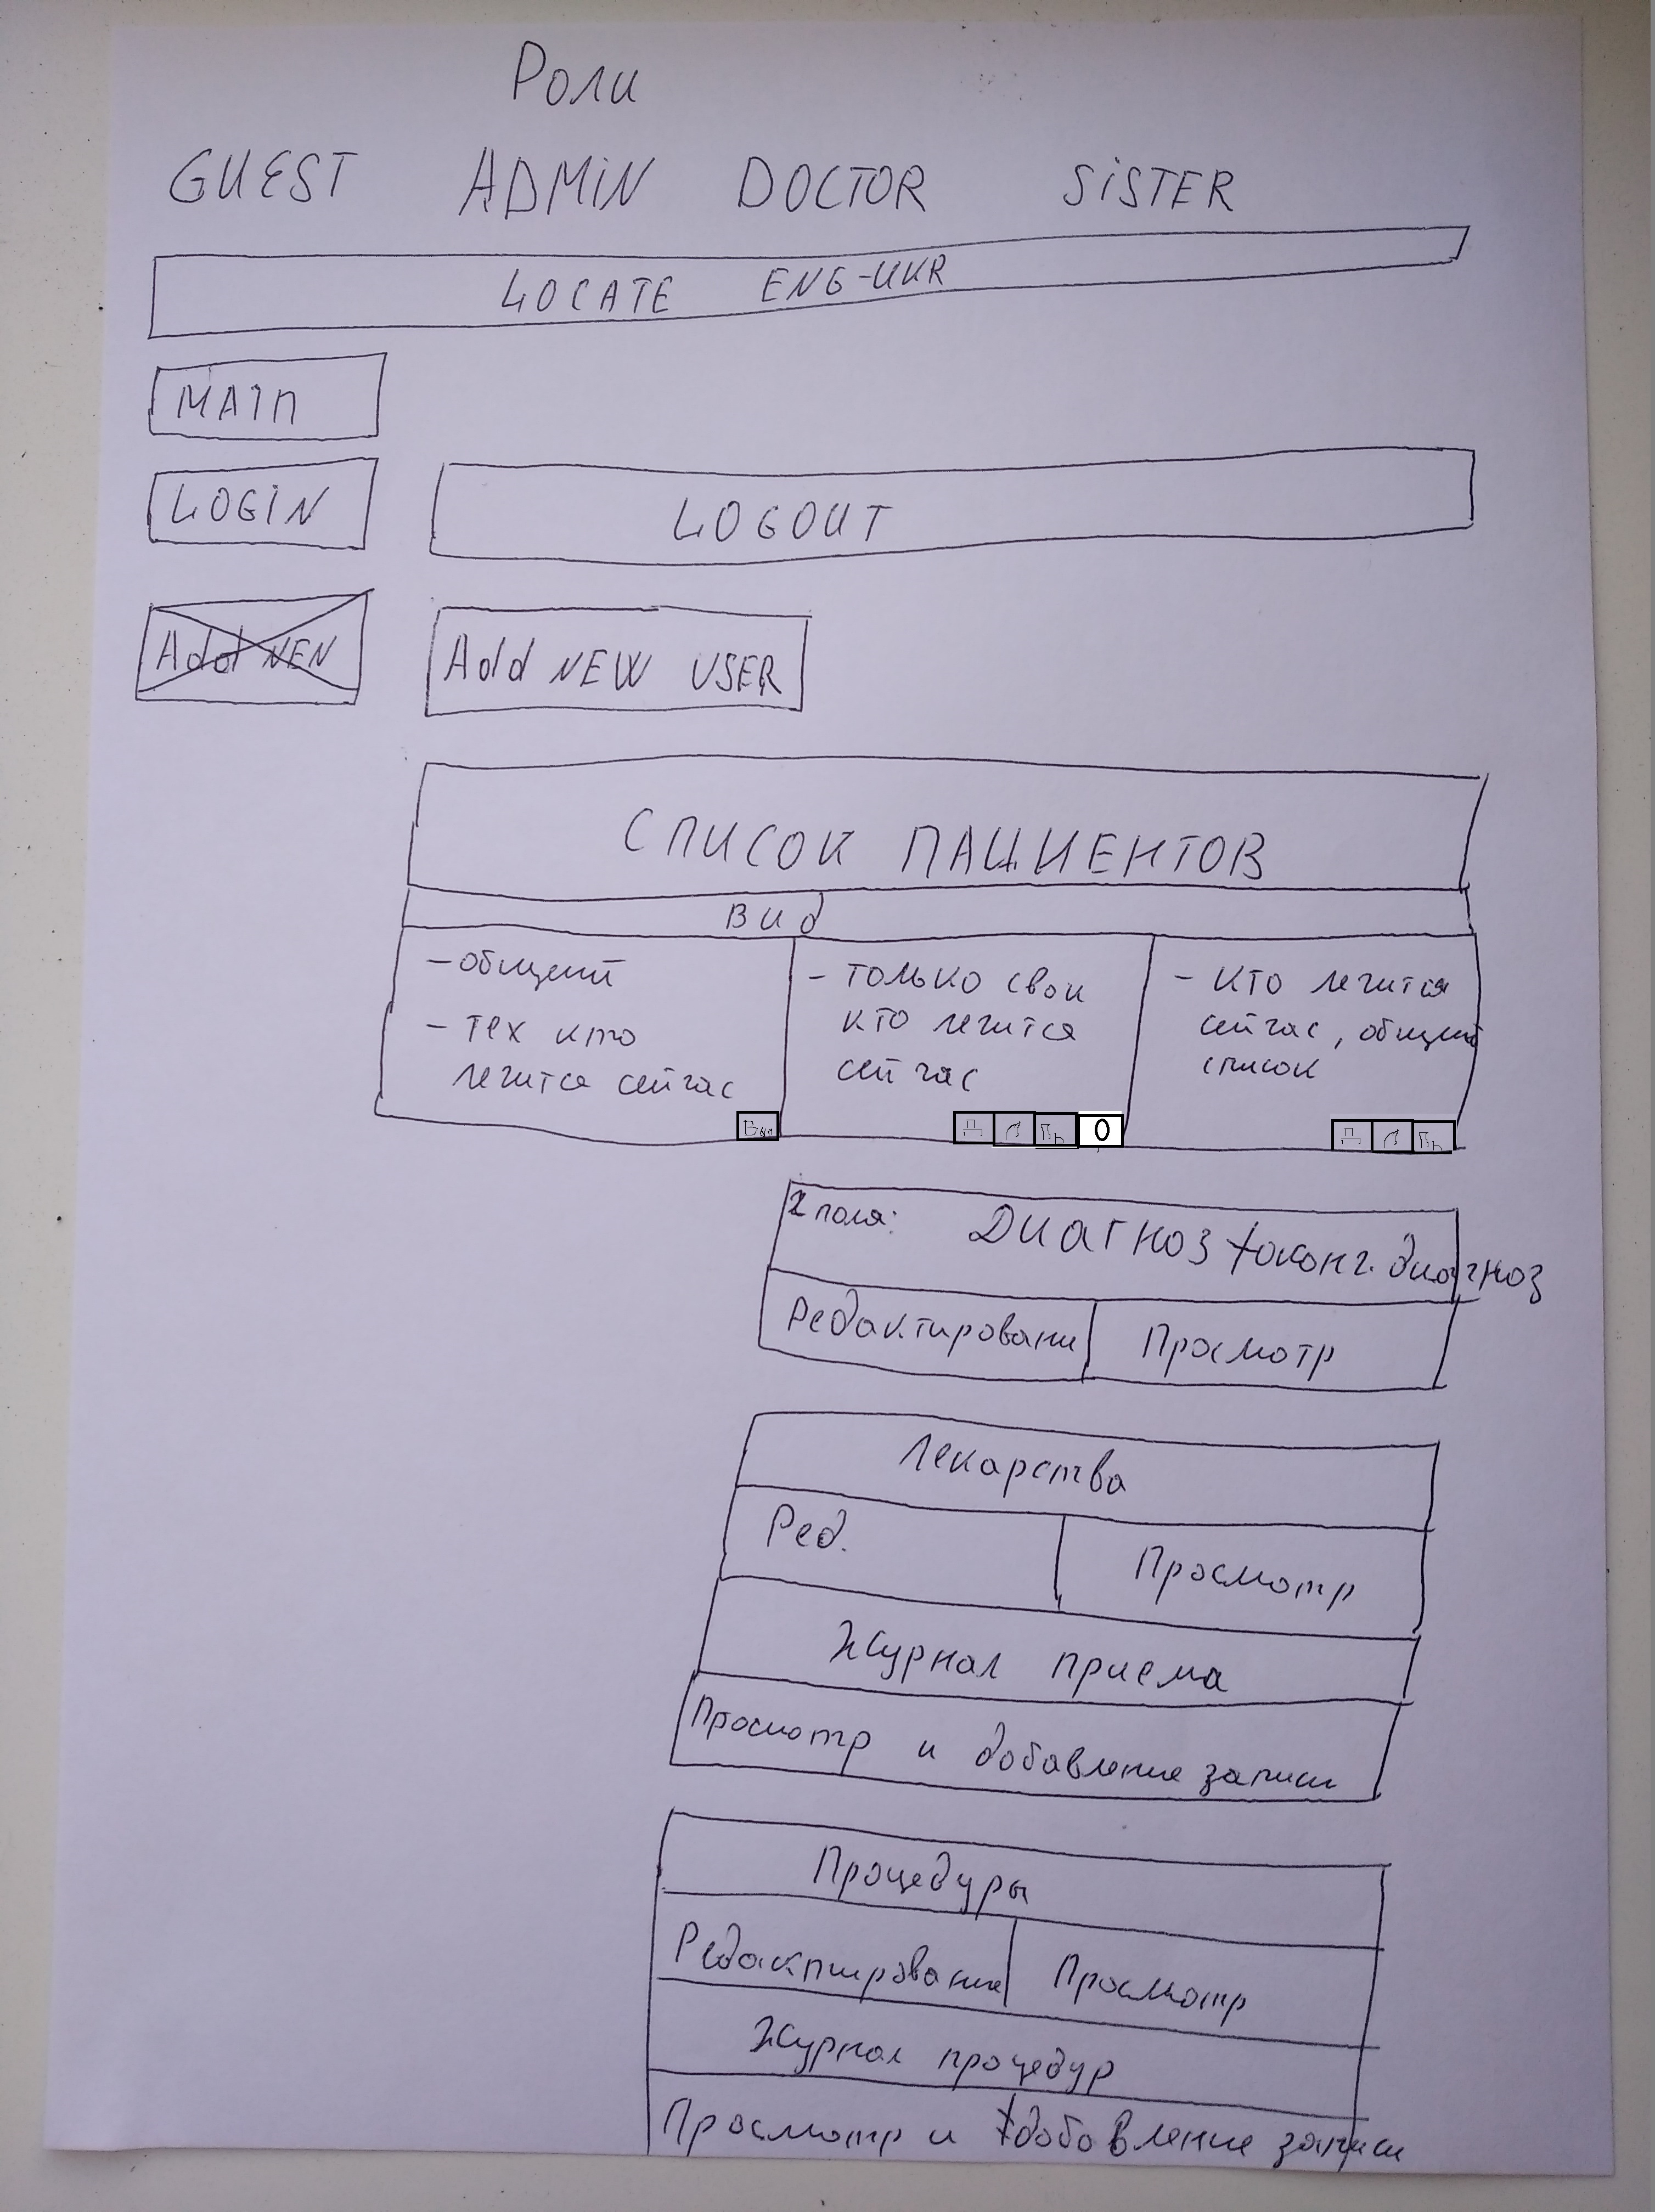 Роли
GUEST ADMIN DOCTOR SISTER
LOCATE ENG-UKR
MAIN
LOGIN LOGOUT
Add NEN Add NEW USER
СПИСОК ПАЦИЕНТОВ
Вид
- общий
- тех кто
лечится сейчас
- только свои
кто лечится
сейчас
- кто лечится
сейчас, общий
список
Вып
Д Л Пр О
Д Л Пр
2 поля: Диагноз + оконч. диагноз
Редактировани Просмотр
Лекарства
Ред. Просмотр
Журнал приема
Просмотр и добавление записи
Процедуры
Редактирование Просмотр
Журнал процедур
Просмотр и добавление записи